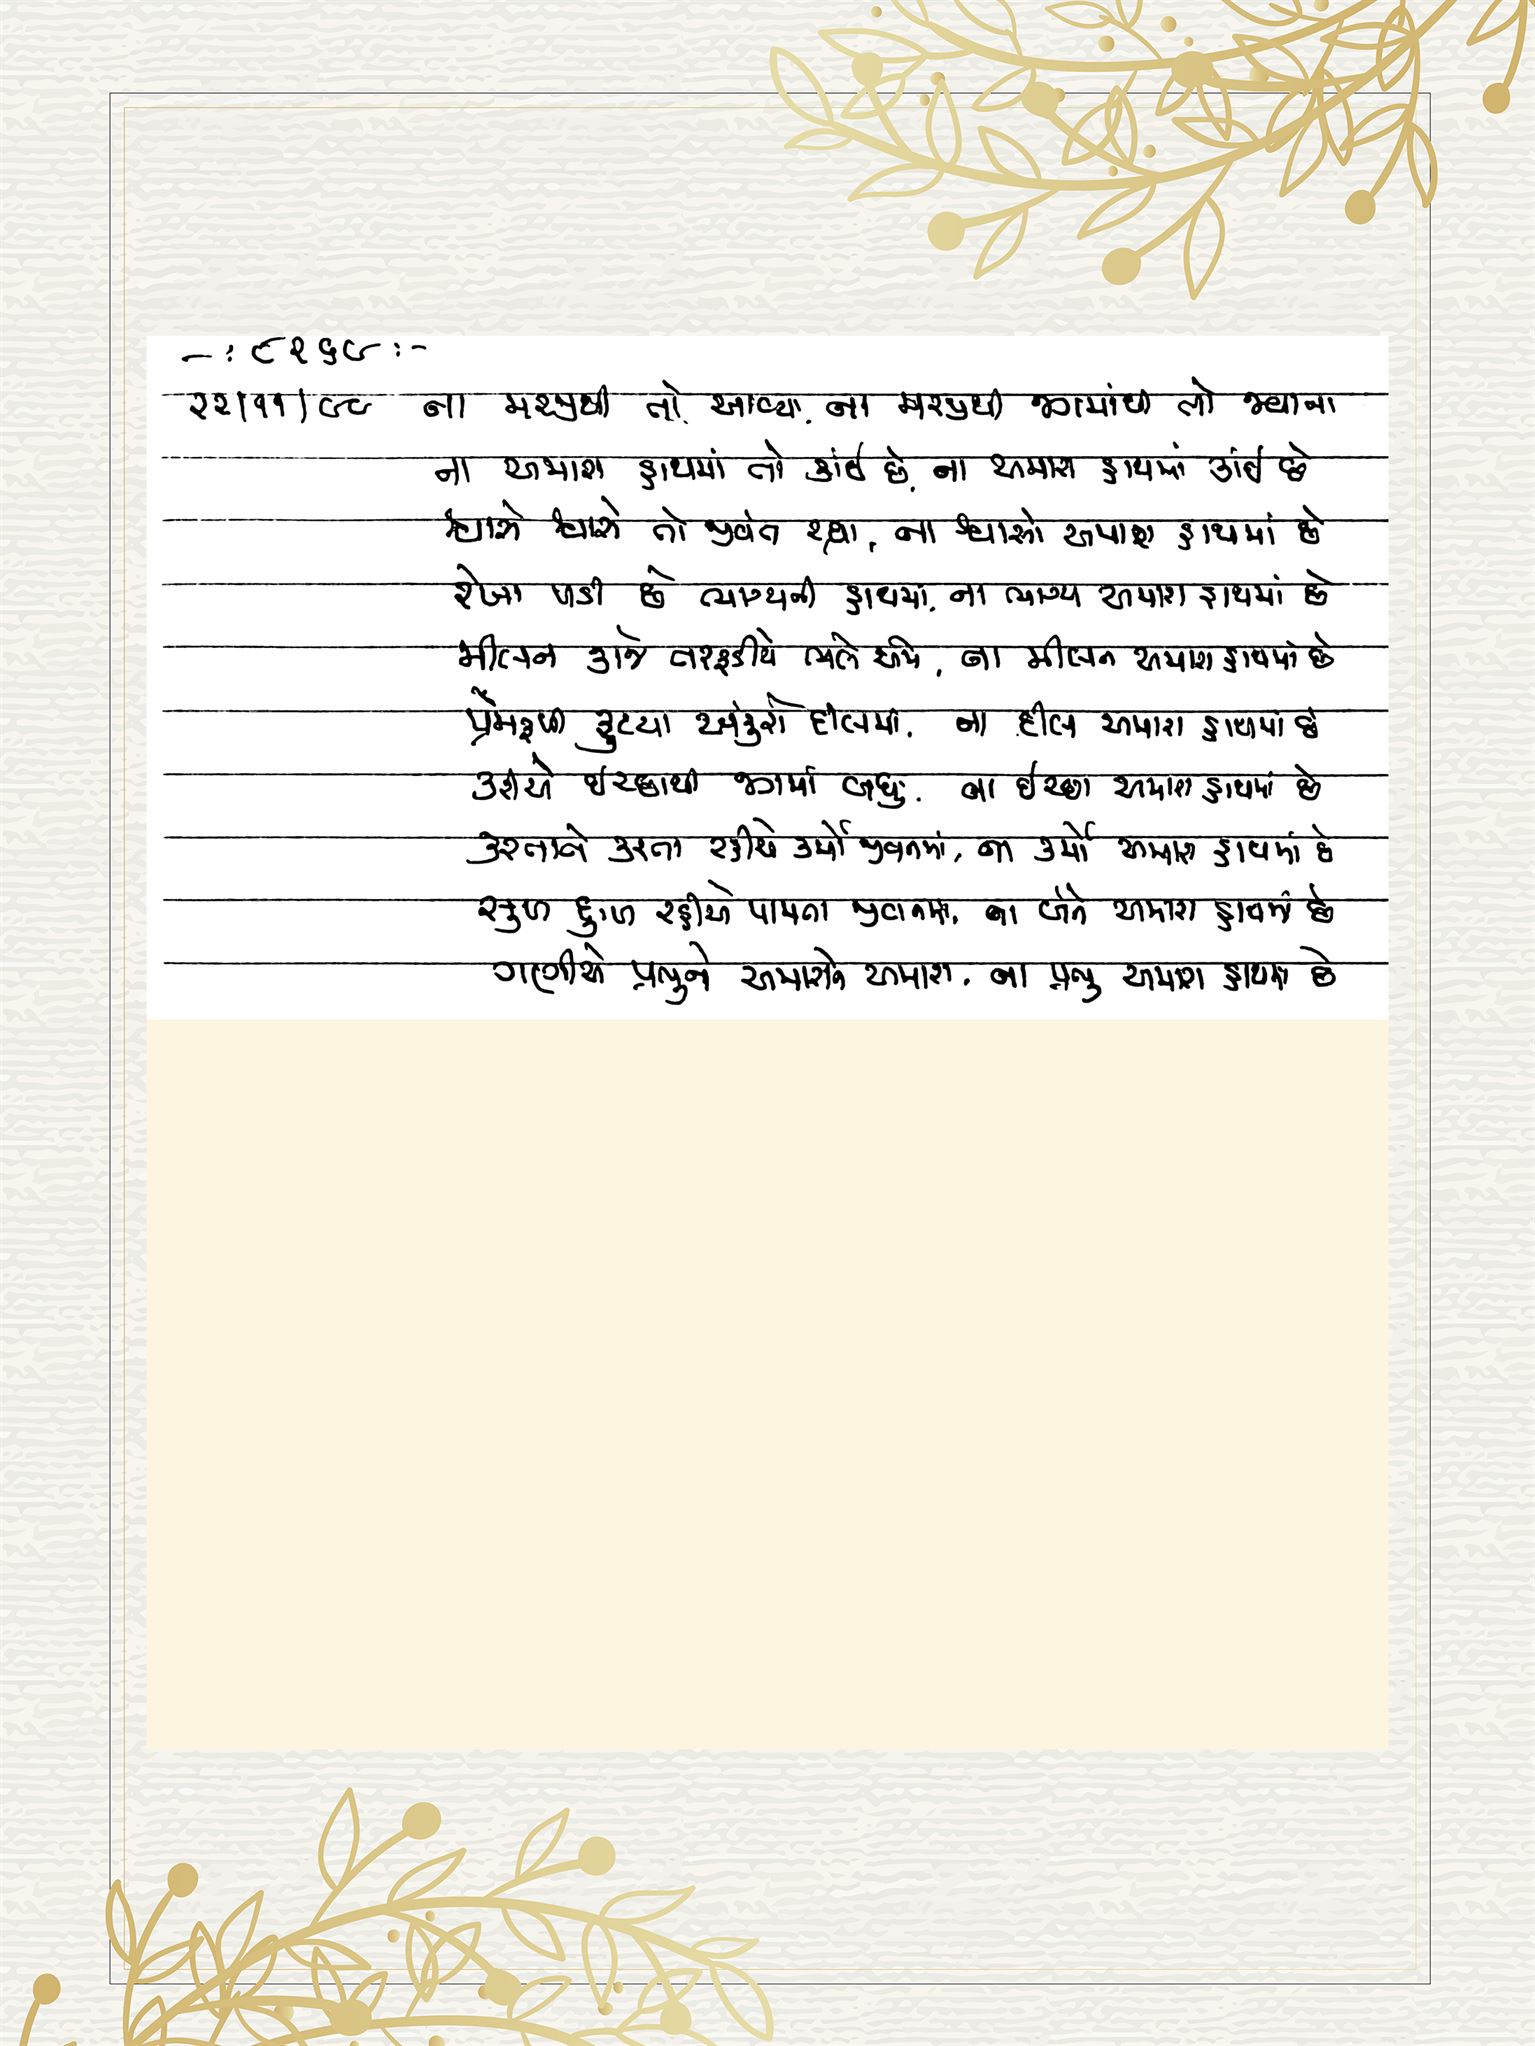 -: ૯૨૬૯ :-
૨૨/૧૧/૯૯ ના મરજીથી તો આવ્યા, ના મરજીથી જગમાંથી તો જવાના
ના અમારા હાથમાં તો કાંઈ છે, ના અમારા હાથમાં કાંઈ છે
શ્વાસે શ્વાસે તો જીવંત રહ્યા, ના શ્વાસો અમારા હાથમાં છે
રેખા પડી છે ભાગ્યની હાથમાં, ના ભાગ્ય અમારા હાથમાં છે
મીલન કાજે તરફડીયે ભલે અમે, ના મીલન અમારા હાથમાં છે
પ્રેમરૂપી ફુટયા અંકુરો દીલમાં, ના દીલ અમારા હાથમાં છે
કરીએ ઈચ્છાથી જગમાં બધું, ના ઈચ્છા અમારા હાથમાં છે
કરતાને કરતા રહીયે કર્મો જીવનમાં, ના કર્મો અમારા હાથમાં છે
સુખ દુઃખ રહીએ પામતા જીવનમાં, ના બંને અમારા હાથમાં છે
ગણીએ પ્રભુને અમારાને અમારા, ના પ્રભુ અમારા હાથમાં છે